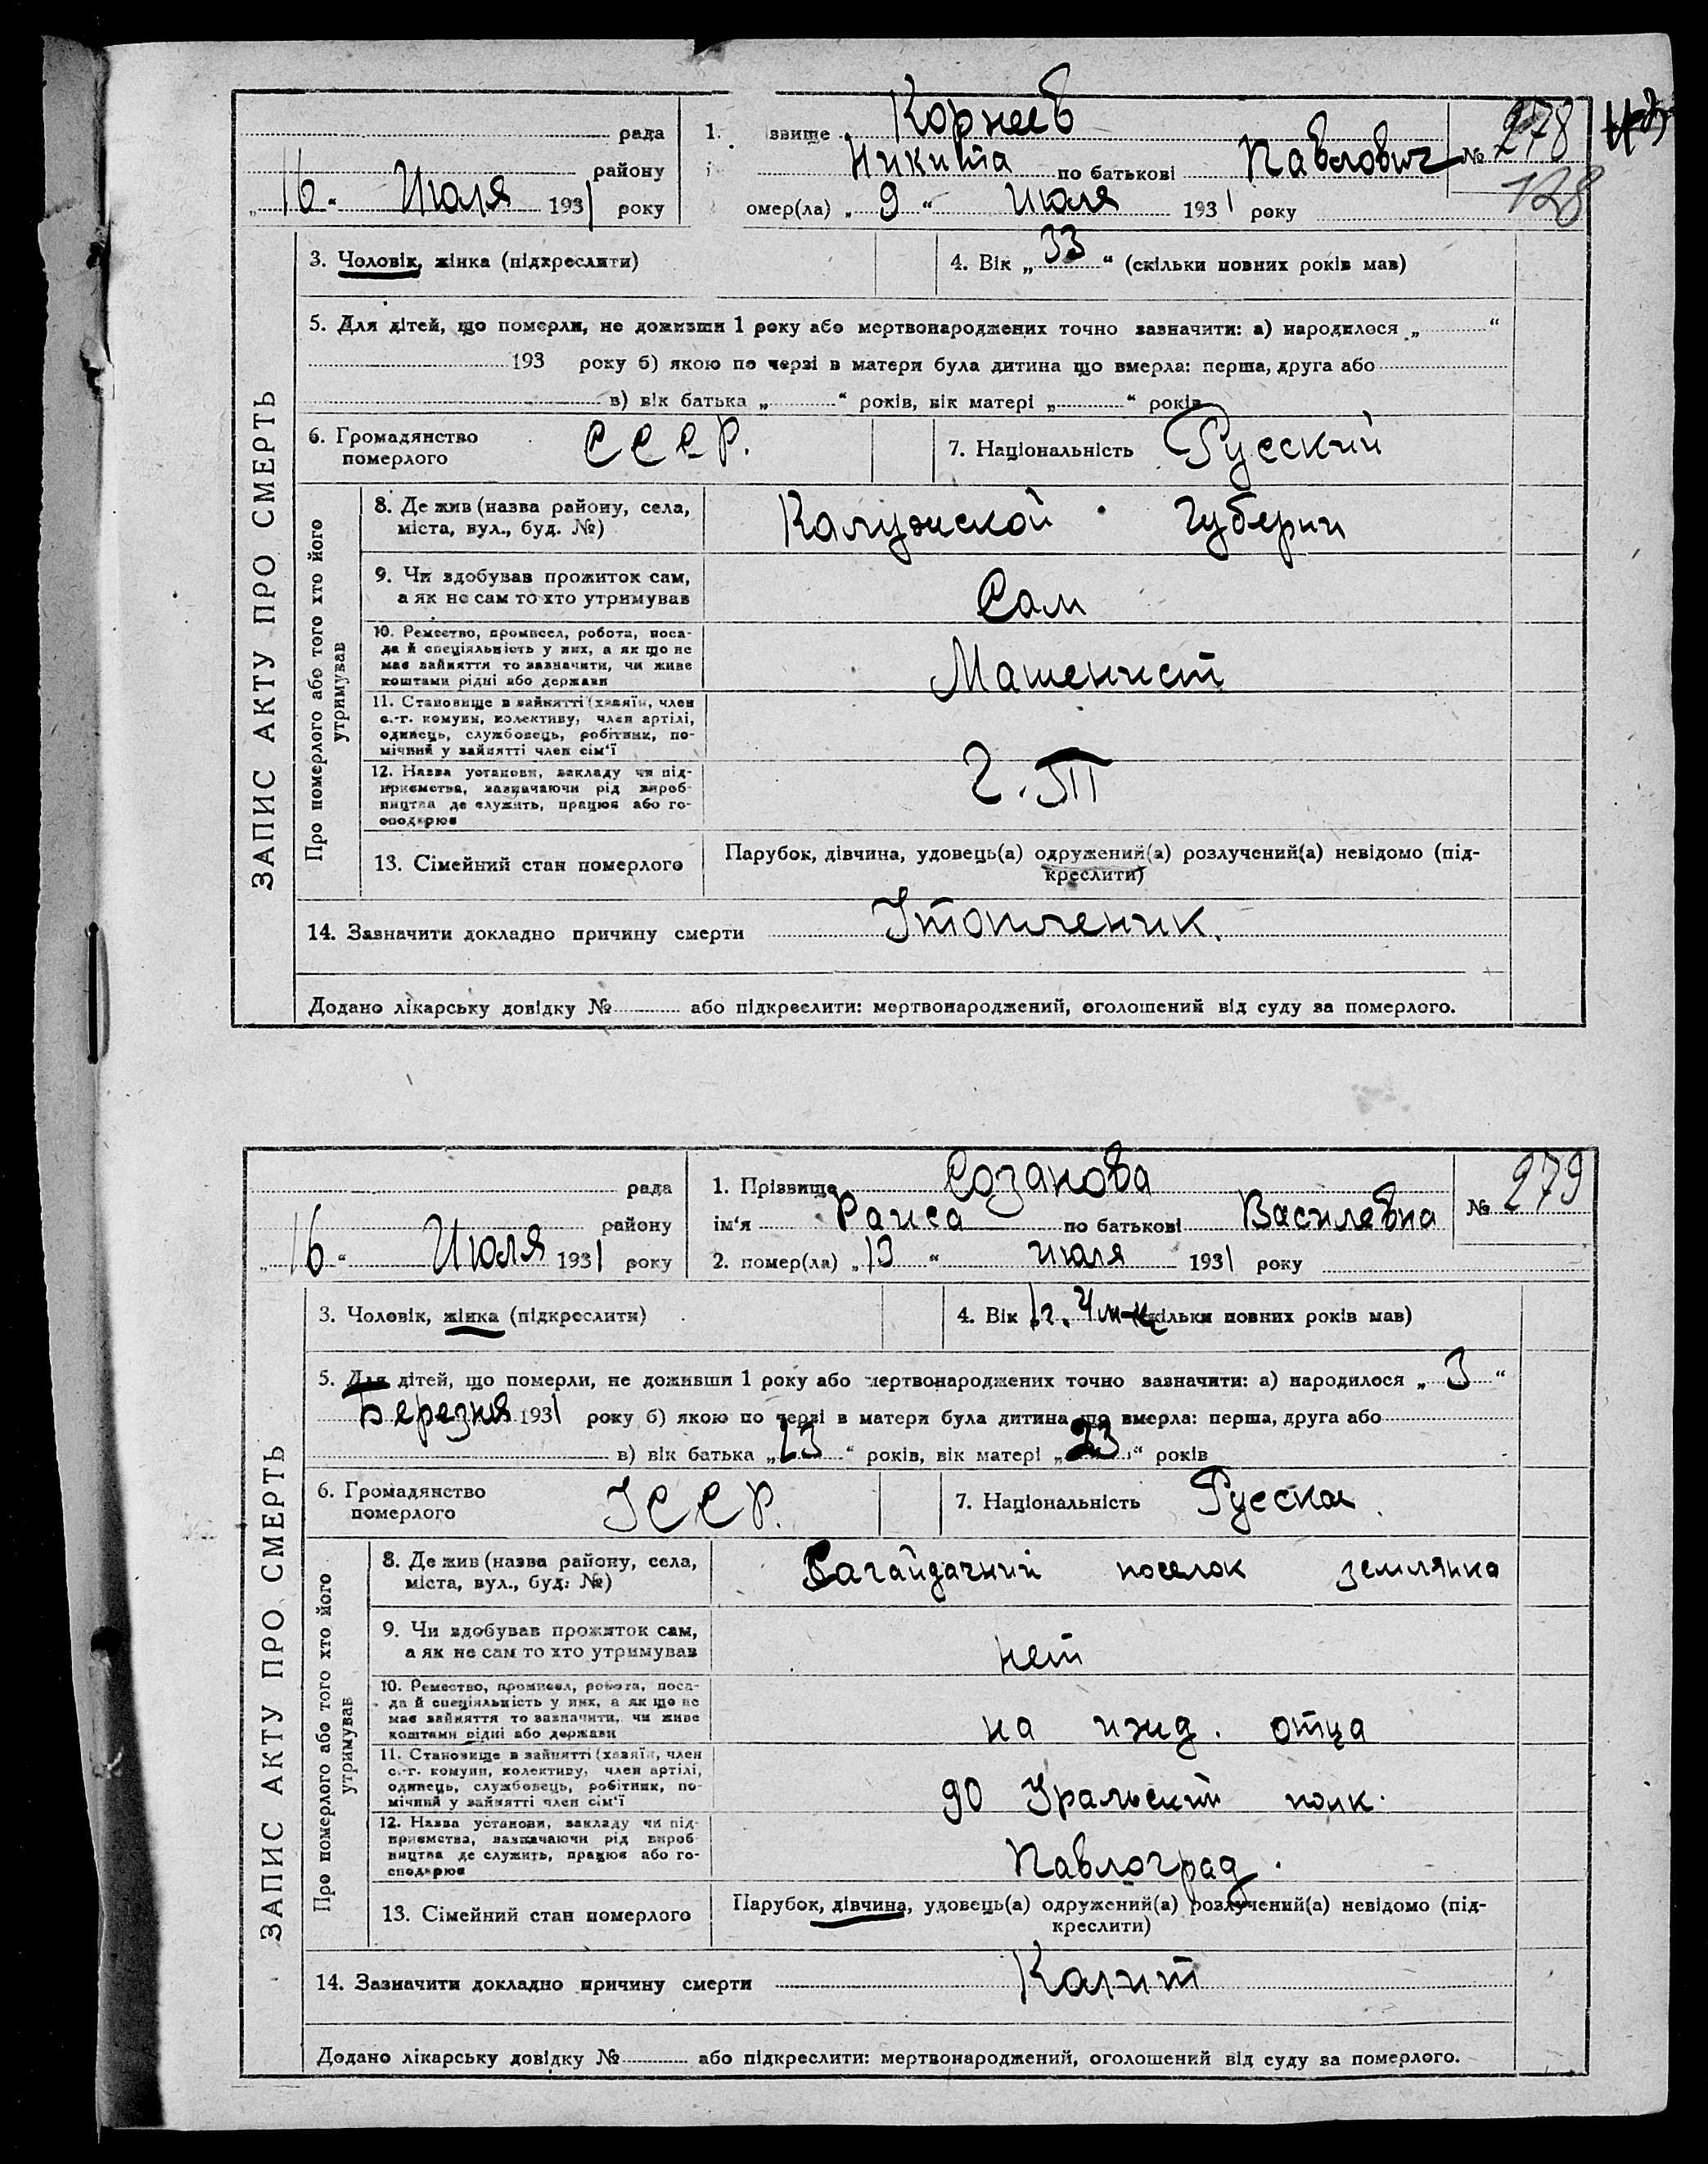 рада
району
„16“ Июля 1931 року
1. звище Корнеев
Никита по батькові Павлович
омер(ла) „9“ июля 1931 року
№ 278
128
ЗАПИС АКТУ ПРО СМЕРТЬ
3. Чоловік, жінка (підкреслити)
4. Вік „33“ (скільки повних років мав)
5. Для дітей, що померли, не доживши 1 року або мертвонароджених точно зазначити: а) народилося „ “
193 року б) якою по черзі в матери була дитина що вмерла: перша, друга або
в) вік батька „ “ років, вік матері „ “ років
6. Громадянство
померлого
СССР.
7. Національність Русский
Про померлого або того хто його
утримував
8. Де жив (назва району, села,
міста, вул., буд. №)
Калужской Губерии
9. Чи здобував прожиток сам,
а як не сам то хто утримував
Сам
10. Ремество, промисел, робота, поса-
да й спеціяльність у них, а як що не
має зайняття то зазначити, чи живе
коштами рідні або держави
Машенист
11. Становище в зайнятті (хазяїн, член
с.-г. комуни, колективу, член артілі,
одинець, службовець, робітник, по-
мічний у зайнятті член сім'ї
12. Назва установи, закладу чи під-
приємства, зазначаючи рід вироб-
ництва де служить, працює або го-
сподарює
13. Сімейний стан померлого
Парубок, дівчина, удовець(а) одружений(а) розлучений(а) невідомо (під-
креслити)
14. Зазначити докладно причину смерти Утопленник.
Додано лікарську довідку № або підкреслити: мертвонароджений, оголошений від суду за померлого.
рада
району
„16“ Июля 1931 року
1. Прізвище Созанова
ім'я Раиса по батькові Василевна
2. помер(ла) „13“ июля 1931 року
№ 279
ЗАПИС АКТУ ПРО СМЕРТЬ
3. Чоловік, жінка (підкреслити)
4. Вік 1 г. 4 м-ц скільки повних років мав)
5. Для дітей, що померли, не доживши 1 року або мертвонароджених точно зазначити: а) народилося „3“
Березня 1931 року б) якою по черзі в матери була дитина що вмерла: перша, друга або
в) вік батька „23“ років, вік матері „23“ років
6. Громадянство
померлого
УССР.
7. Національність Русская
Про померлого або того хто його
утримував
8. Де жив (назва району, села,
міста, вул., буд. №)
Сагайдачний поселок землянка
9. Чи здобував прожиток сам,
а як не сам то хто утримував
нет
10. Ремество, промисел, робота, поса-
да й спеціяльність у них, а як що не
має зайняття то зазначити, чи живе
коштами рідні або держави
на ижд. отца
11. Становище в зайнятті (хазяїн, член
с.-г. комуни, колективу, член артілі,
одинець, службовець, робітник, по-
мічний у зайнятті член сім'ї
90 Уральский полк.
12. Назва установи, закладу чи під-
приємства, зазначаючи рід вироб-
ництва де служить, працює або го-
сподарює
Павлоград.
13. Сімейний стан померлого
Парубок, дівчина, удовець(а) одружений(а) розлучений(а) невідомо (під-
креслити)
14. Зазначити докладно причину смерти Калит
Додано лікарську довідку № або підкреслити: мертвонароджений, оголошений від суду за померлого.